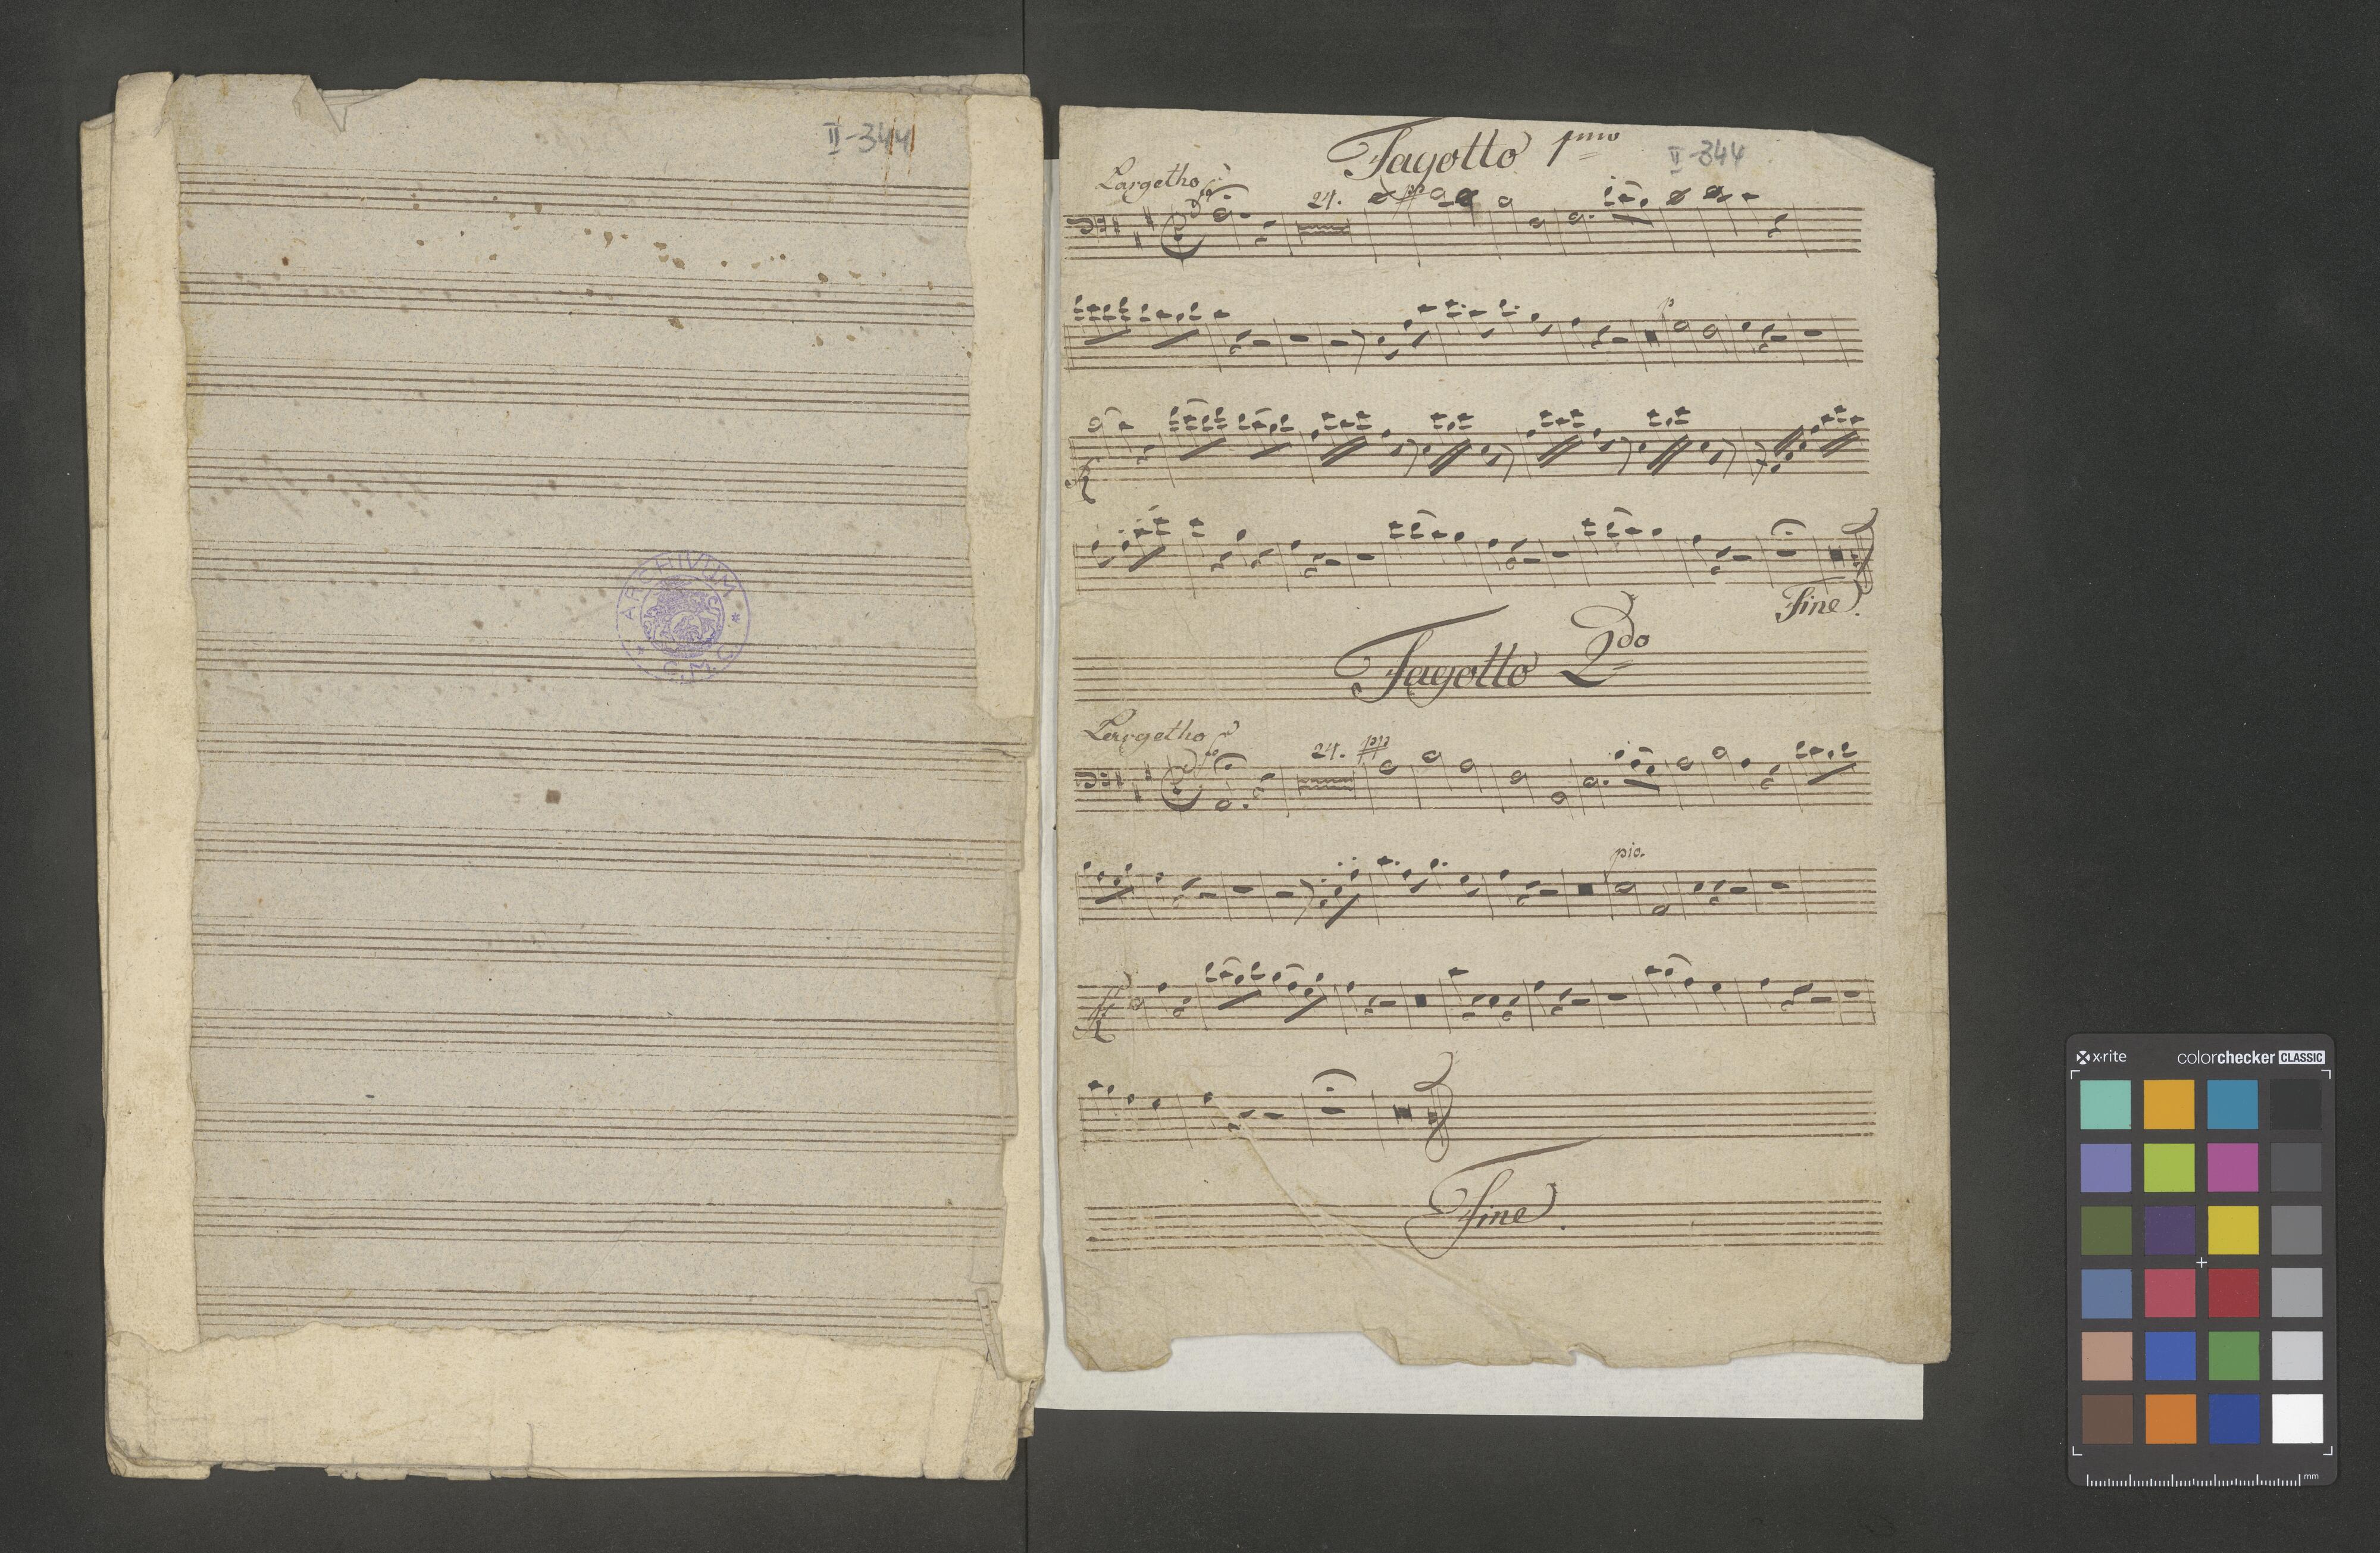 II-344
ARCHIVUM
Fagotto 1mo
II-344
Largetho
24.
pp
p
Fine.
Fagotto 2do
Largetho
24. pp
pio.
Fine.
x-rite colorchecker CLASSIC
mm